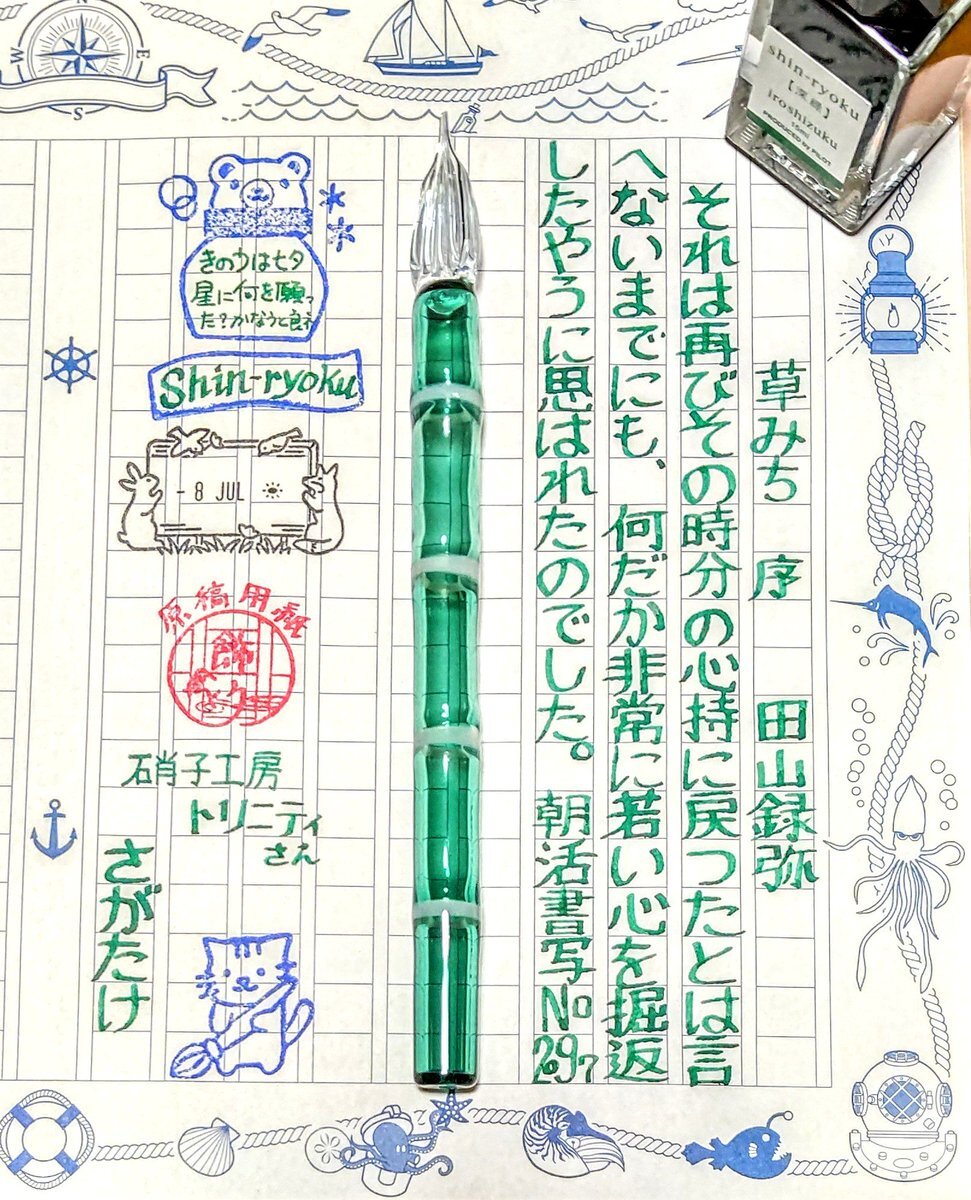 草みち 序 田山録弥
それは再びその時分の心持に戻つたとは言
へないまでにも、何だか非常に若い心を掘返
したやうに思はれたのでした。 朝活書写No
297
shin-ryoku
iroshizuku
15ml
PRODUCED by PILOT
N
W
E
S
きのうは七夕
星に何を願っ
た?かなうと良
Shin-ryoku
- 8 JUL
原稿用紙
飾り
硝子工房
トリニティ
さん
さがたけ